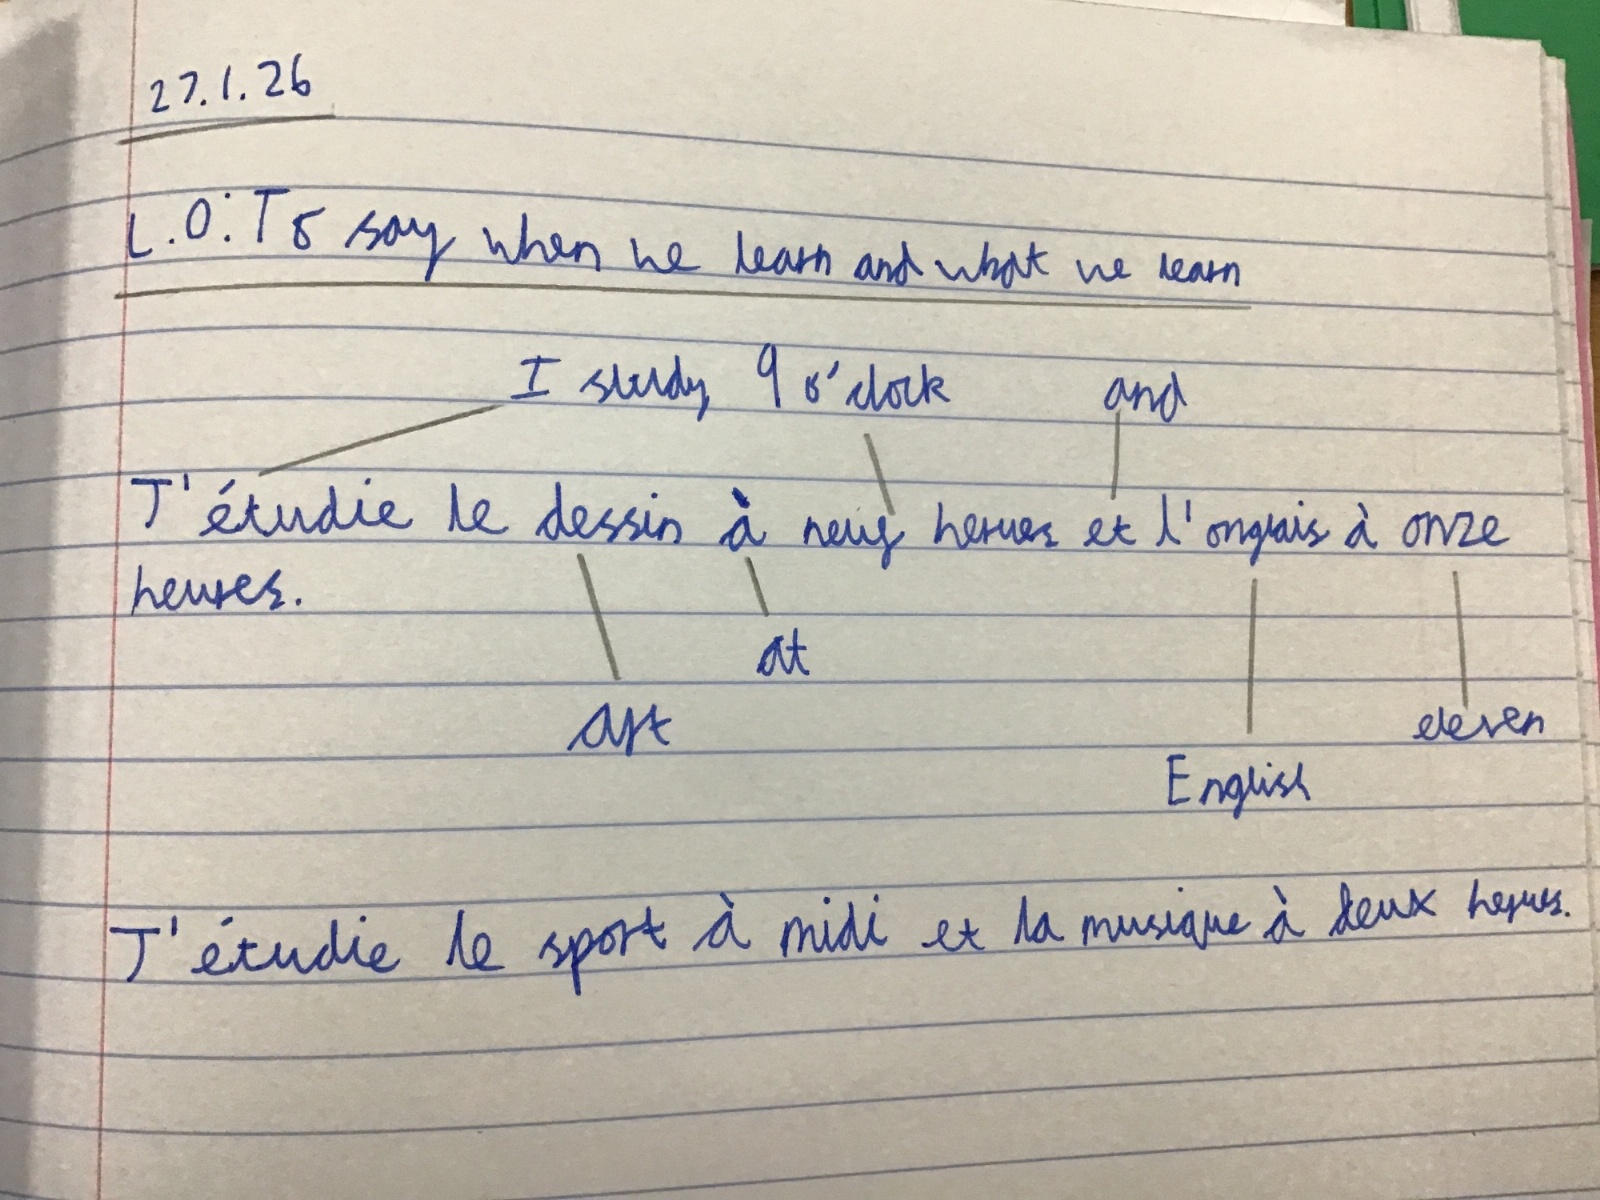 27.1.26
L.O: To say when we learn and what we learn
I study 9 o'clock and
J'étudie le dessin à neuf herues et l'anglais à onze
heures.
at
art
eleven
English
J'étudie le sport à midi et la musique à deux herues.